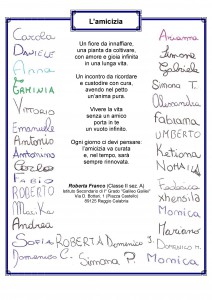 L'amicizia
Carola
Arianna
DANIELE
Simone
Anna
Gabriele
GAMINIA
Simona T.
Vittorio
Alessandra
Emanuele
Fabiana
Antonio
UMBERTO
Antonino
Ketiona
Carlo
NOMAN
FABIO
Federica
ROBERTO
xhensila
Monica
Andrea
Mariano
Un fiore da innaffiare,
una pianta da coltivare,
con amore e gioia infinita
in una lunga vita.
Un incontro da ricordare
e custodire con cura,
avendo nel petto
un'anima pura.
Vivere la vita
senza un amico
porta in te
un vuoto infinito.
Ogni giorno ci devi pensare:
l'amicizia va curata
e, nel tempo, sarà
sempre rinnovata.
Roberta Franco (Classe II sez. A)
Istituto Secondario di I° Grado "Galileo Galilei"
Via D. Bottari, 1 (Piazza Castello)
89125 Reggio Calabria
SOFIA ROBERTA Domenico J. DOMENICO M.
Domenico C. Simona P. Monica